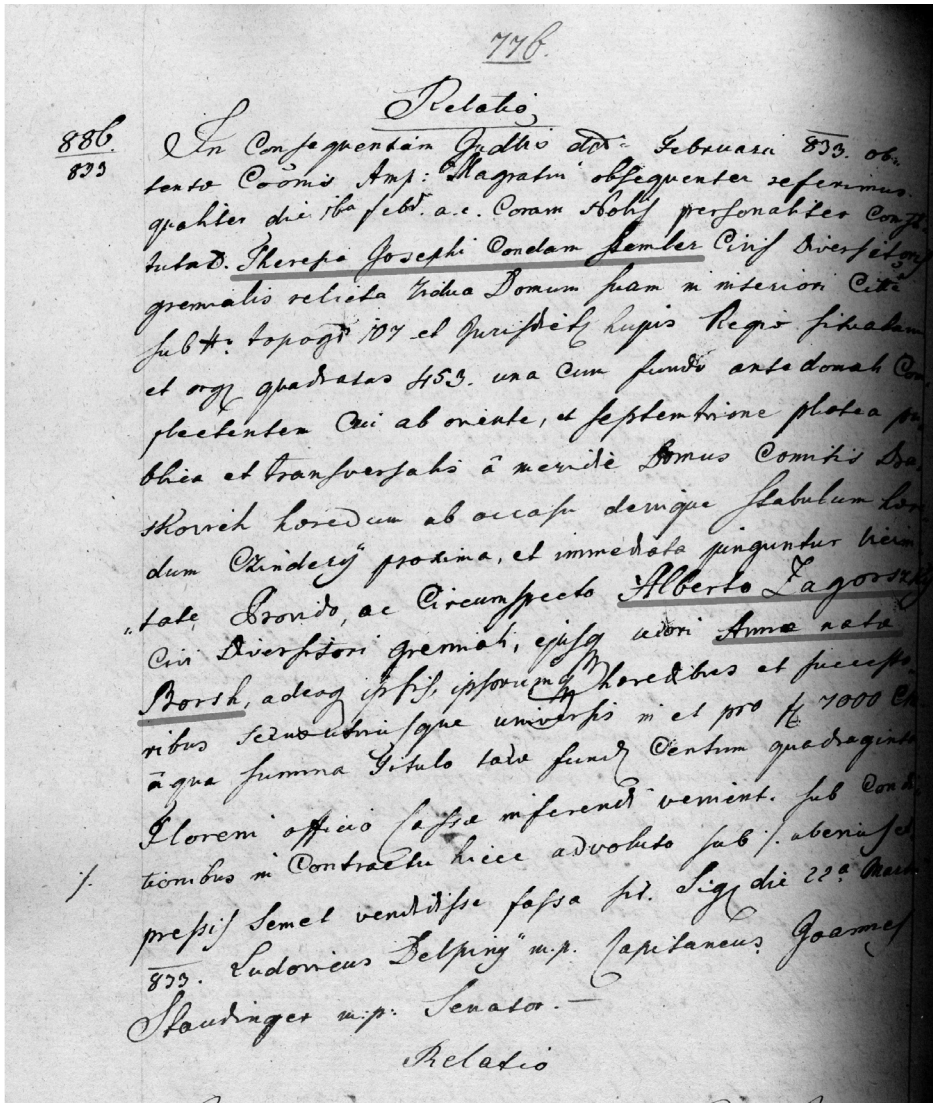 776.
Relatio
886
833
In Consequentiam Gndtlis dtto Februarii 833. ob-
tento Coõnis Amp: Magratus obsequenter referimus
qualiter die febr. a.c. Coram Nobis personaliter Consti-
tuta D. Theresia Josephi Condam Stember Civis Diversitoris
gremialis relicta Vidua Domum suam in interiori Citte
sub No topogr 107 et Jurisdict hujus Regio situatam
et orgs quadratas 453. una cum fundo antedomali Com-
plectentem Cui ab oriente, et septemtrione platea pu-
blica et transversalis â meridie Domus Comitis Dra-
skovich hæredum ab occasu denique stabulum hære-
dum Czinderÿ proxima, et immediata junguntur vicini-
tate, Provido, ac Circumspecto Alberto Zagorszky
Civi Diversitori gremiali, ejusq uxori Annæ natæ
Borsh, adeoq ipsis, ipsorumq hæredibus et successo-
ribus sexus utriusque universis in et pro fl 7000
â qua summa Titulo taxæ fundi Centum quadraginta
Floreni officio Cassæ inferendi venient. sub Condi-
tionibus in Contractu hicce advoluto sub ·/. uberius ex-
·/.
pressis semet vendidisse fassa sit. Sig die 22a Martii
833. Ludovicus Delpinÿ m.p. Capitaneus Joannes
Staudinger m.p. Senator. —
Relatio